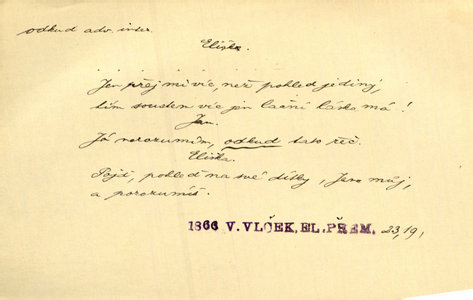 odkud adv. inter.
Eliška.
Jen přej mi víc, než pohled jediný,
tím soustem víc jen lační láska má!
Jan.
Já nerozumím, odkud tato řeč.
Eliška.
Pojď, pohleď na své dítky, Jene můj,
a porozumíš.
1866 V. VLČEK, EL. PŘEM. 23, 19,